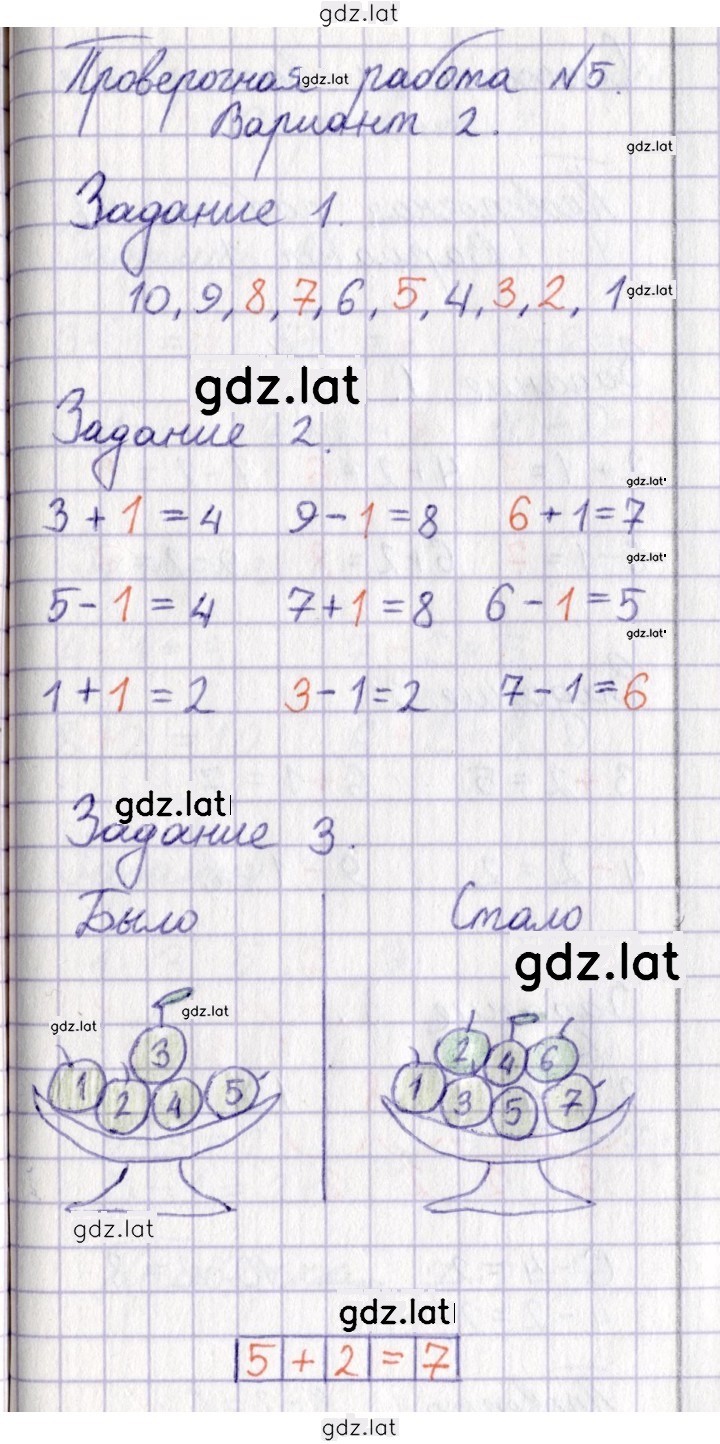 gdz.lat
Проверочная gdz.lat работа №5.
Вариант 2.
gdz.lat
Задание 1.
10, 9, 8, 7, 6, 5, 4, 3, 2, 1 gdz.lat
gdz.lat
Задание 2.
gdz.lat
3 + 1 = 4 9 - 1 = 8 6 + 1 = 7
gdz.lat
5 - 1 = 4 7 + 1 = 8 6 - 1 = 5
gdz.lat
1 + 1 = 2 3 - 1 = 2 7 - 1 = 6
gdz.lat
Задание 3.
Было Стало
gdz.lat
gdz.lat gdz.lat
3 2 4 6
1 2 4 5 1 3 5 7
gdz.lat
gdz.lat
5 + 2 = 7
gdz.lat